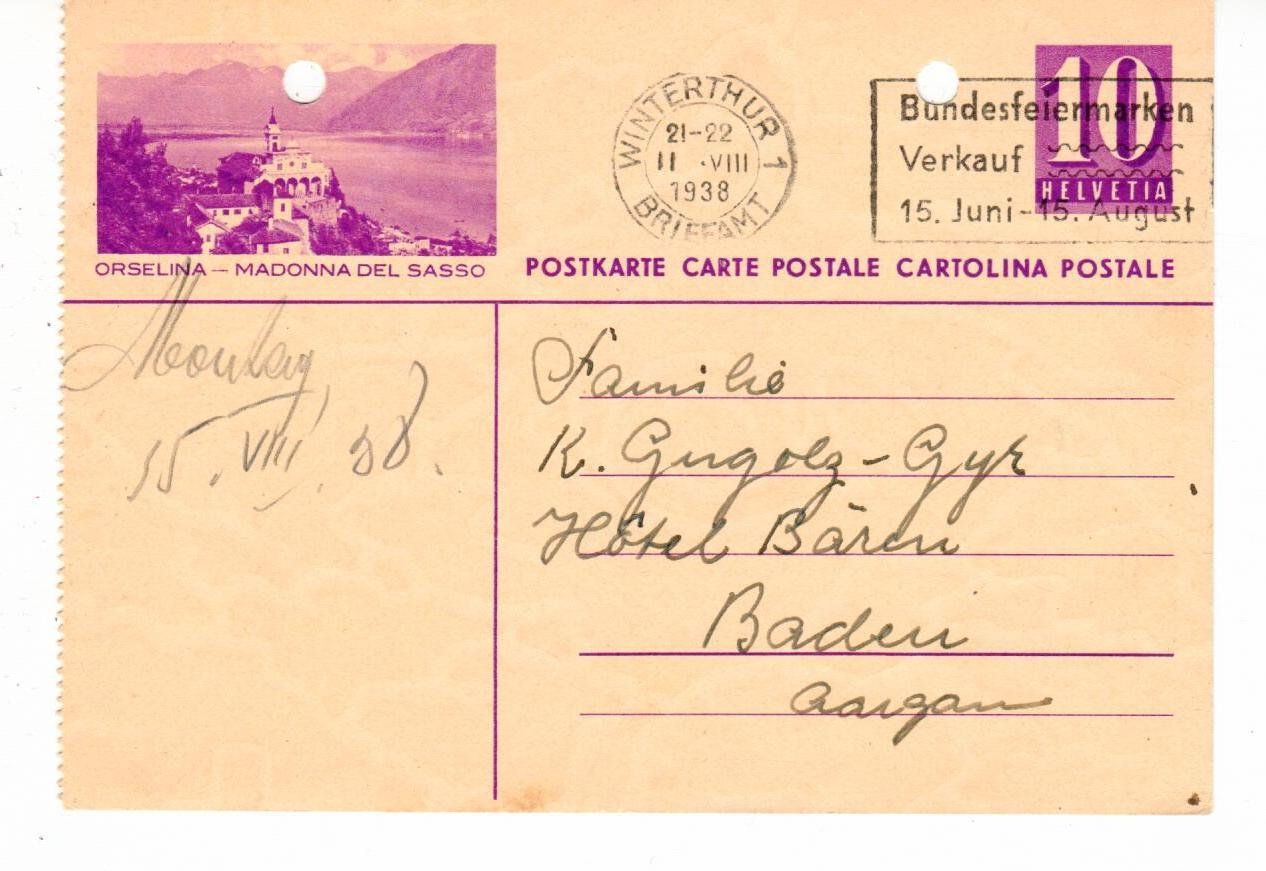 WINTERTHUR 1
21-22
11 · VIII
1938
BRIEFAMT
Bundesfeiermarken
Verkauf
15. Juni-15. August
10
HELVETIA
ORSELINA — MADONNA DEL SASSO
POSTKARTE CARTE POSTALE CARTOLINA POSTALE
Montag
15. VIII. 38.
Familie
K. Gugolz-Gyr
Hôtel Bären
Baden
Aargau